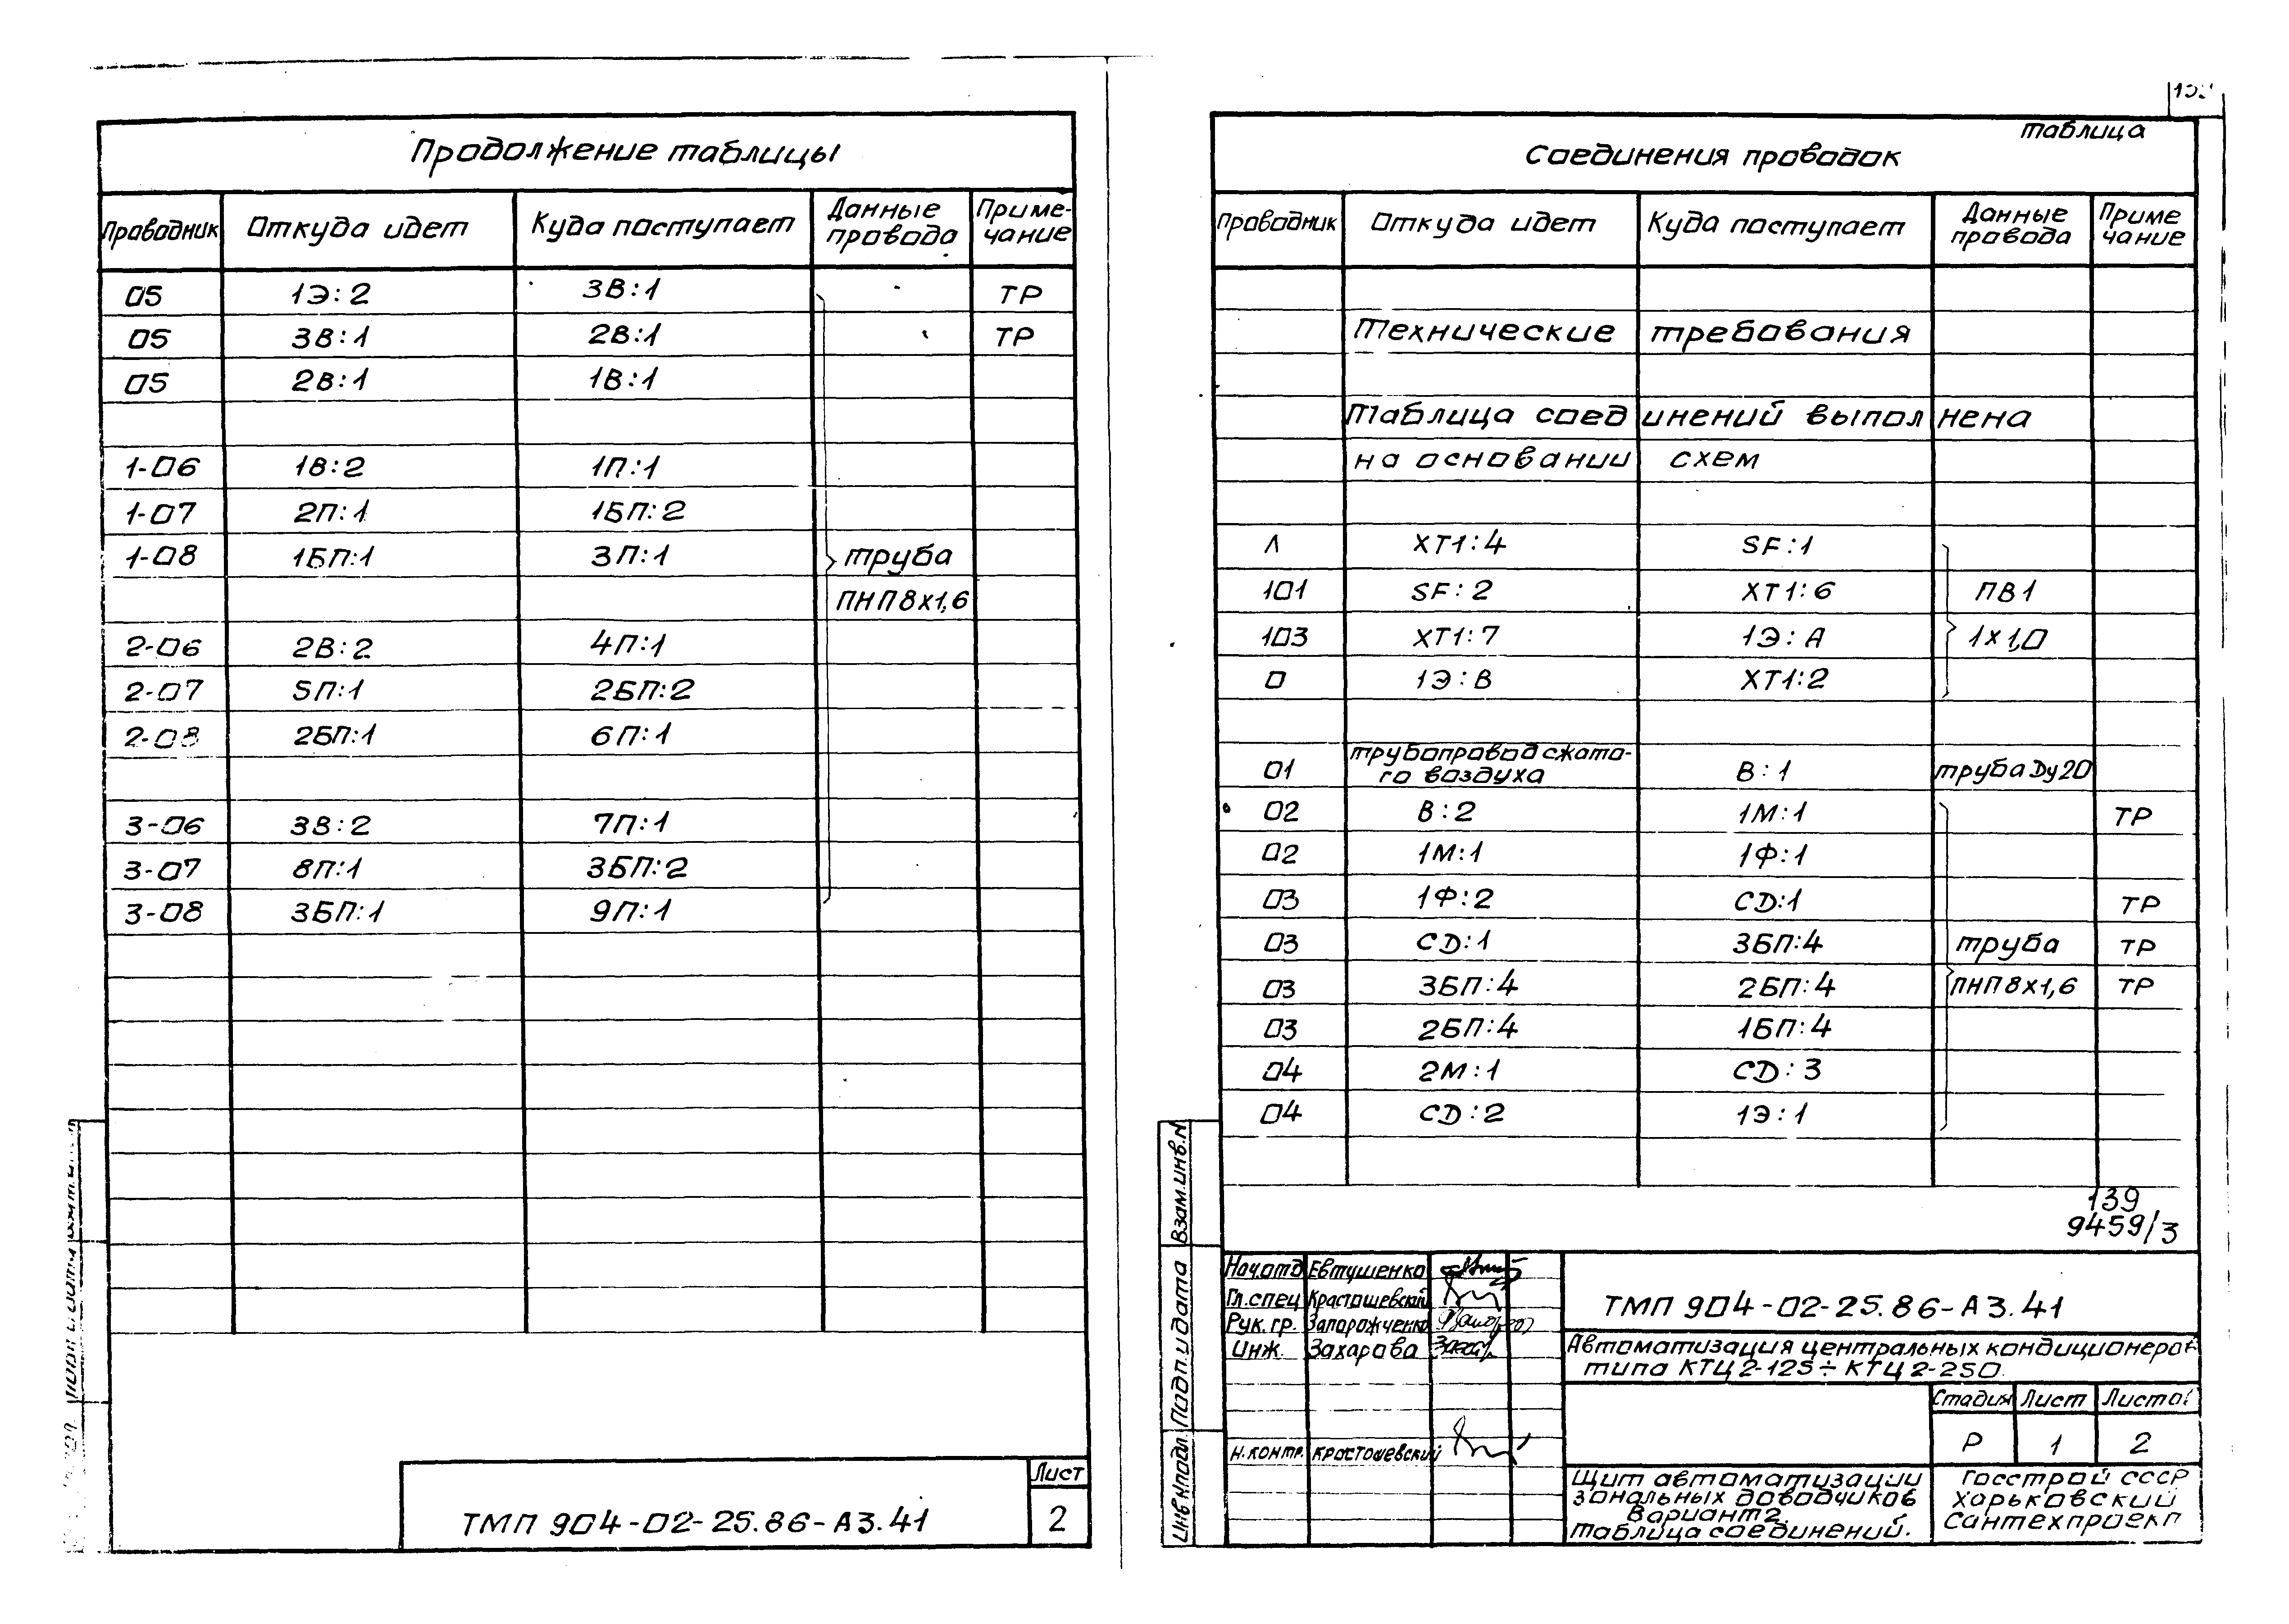 Продолжение таблицы
Проводник Откуда идет Куда поступает Данные провода Приме-чание
05 1Э:2 3В:1 ТР
05 3В:1 2В:1 ТР
05 2В:1 1В:1
1-06 1В:2 1П:1
1-07 2П:1 1БП:2
1-08 1БП:1 3П:1 труба
ПНП8х1,6
2-06 2В:2 4П:1
2-07 5П:1 2БП:2
2-08 2БП:1 6П:1
3-06 3В:2 7П:1
3-07 8П:1 3БП:2
3-08 3БП:1 9П:1
Лист
ТМП 904-02-25.86-А3.41 2
таблица
Соединения проводок
Проводник Откуда идет Куда поступает Данные провода Приме чание
Технические требования
Таблица соединений выполнена
на основании схем
Л ХТ1:4 SF:1
101 SF:2 ХТ1:6 ПВ1
103 ХТ1:7 1Э:А 1х1,0
0 1Э:В ХТ1:2
трубопровод сжато-
01 го воздуха В:1 труба Ду20
02 В:2 1М:1 ТР
02 1М:1 1Ф:1
03 1Ф:2 СD:1 ТР
03 СD:1 3БП:4 труба ТР
03 3БП:4 2БП:4 ПНП8х1,6 ТР
03 2БП:4 1БП:4
04 2М:1 СD:3
04 СD:2 1Э:1
139
9459/3
Взам.инв.N
Подп.и дата
Инв.Nподл.
Нач.отд Евтушенко
Гл.спец Красташевский
Рук.гр. Запорожченко
Инж. Захарова
Н.контр. Красташевский
ТМП 904-02-25.86-А3.41
Автоматизация центральных кондиционеров
типа КТЦ2-125÷КТЦ2-250.
Стадия Лист Листов
Р 1 2
Щит автоматизации
зональных доводчиков
Вариант2.
Таблица соединений.
Госстрой СССР
Харьковский
Сантехпроект